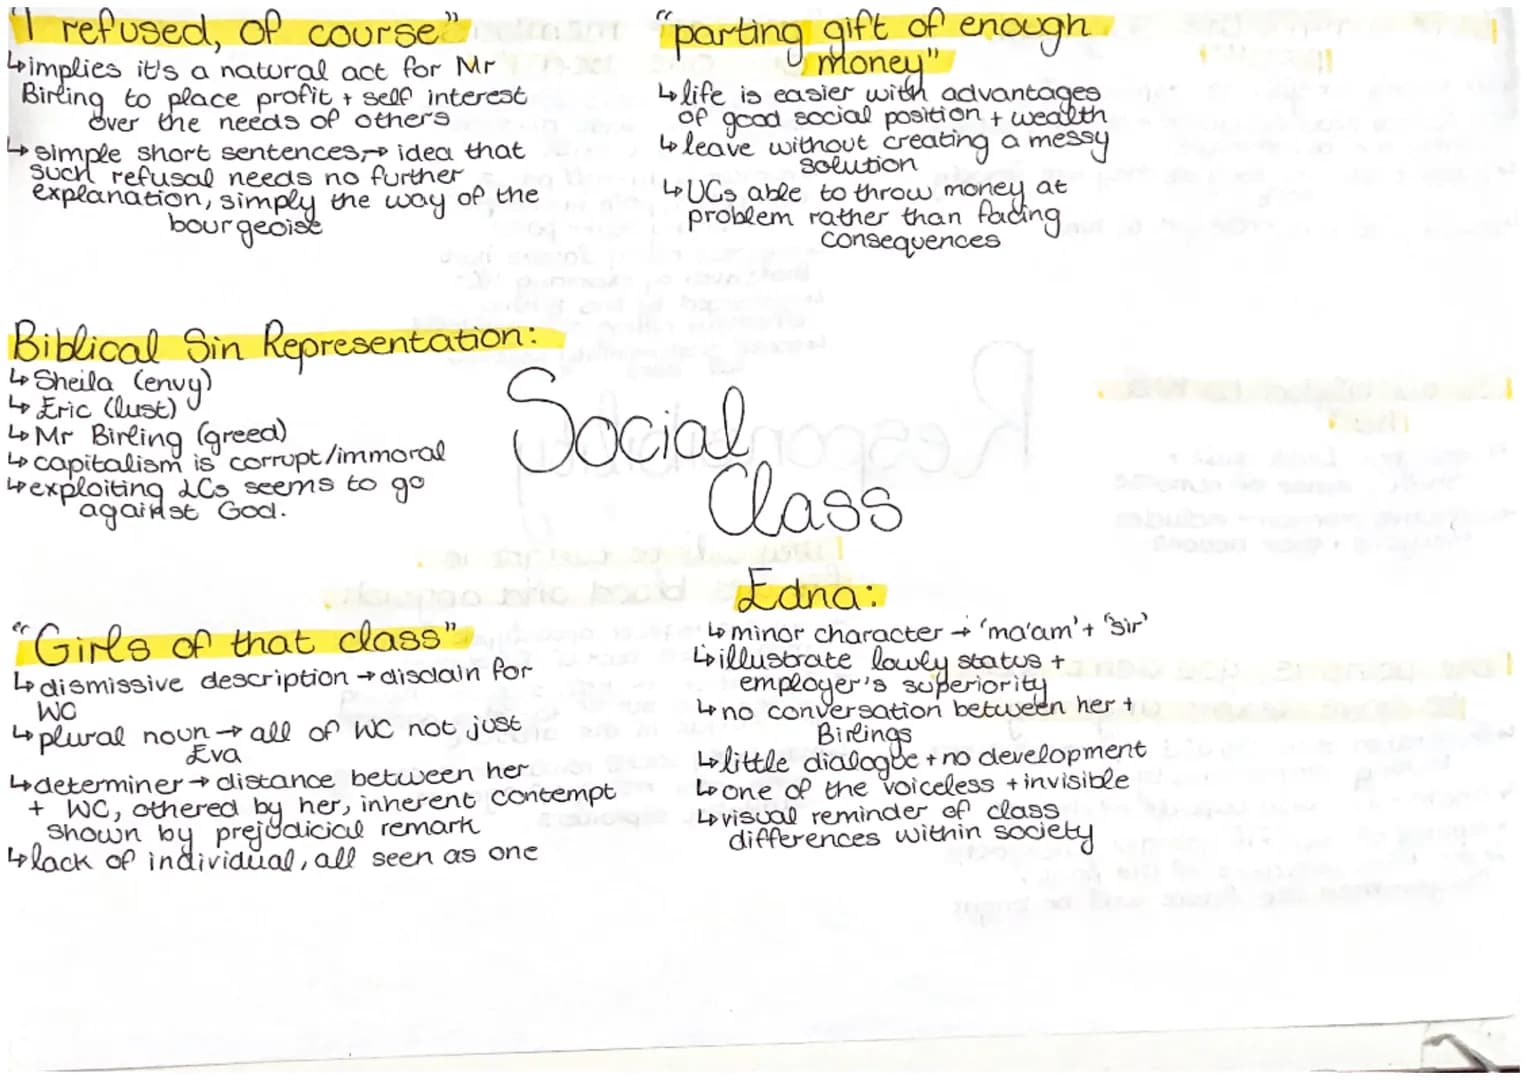 "I refused, of course"
↳implies it's a natural act for Mr
Birling to place profit + self interest
over the needs of others
↳simple short sentences,→ idea that
such refusal needs no further
explanation, simply the way of the
bourgeoise
"parting gift of enough
money"
↳life is easier with advantages
of good social position + wealth
↳leave without creating a messy
solution
↳UCs able to throw money at
problem rather than facing
consequences
Biblical Sin Representation:
↳Sheila (envy)
↳Eric (lust)
↳Mr Birling (greed)
↳capitalism is corrupt/immoral
↳exploiting LCs seems to go
against God.
Social
Class
"Girls of that class"
↳dismissive description → disdain for
WC
↳plural noun → all of WC not just
Eva
↳determiner → distance between her
+ WC, othered by her, inherent contempt
shown by prejudicial remark
↳lack of individual, all seen as one
Edna:
↳minor character → 'ma'am'+ 'sir'
↳illustrate lowly status +
employer's superiority
↳no conversation between her +
Birlings
↳little dialogue + no development
↳one of the voiceless + invisible
↳visual reminder of class
differences within society